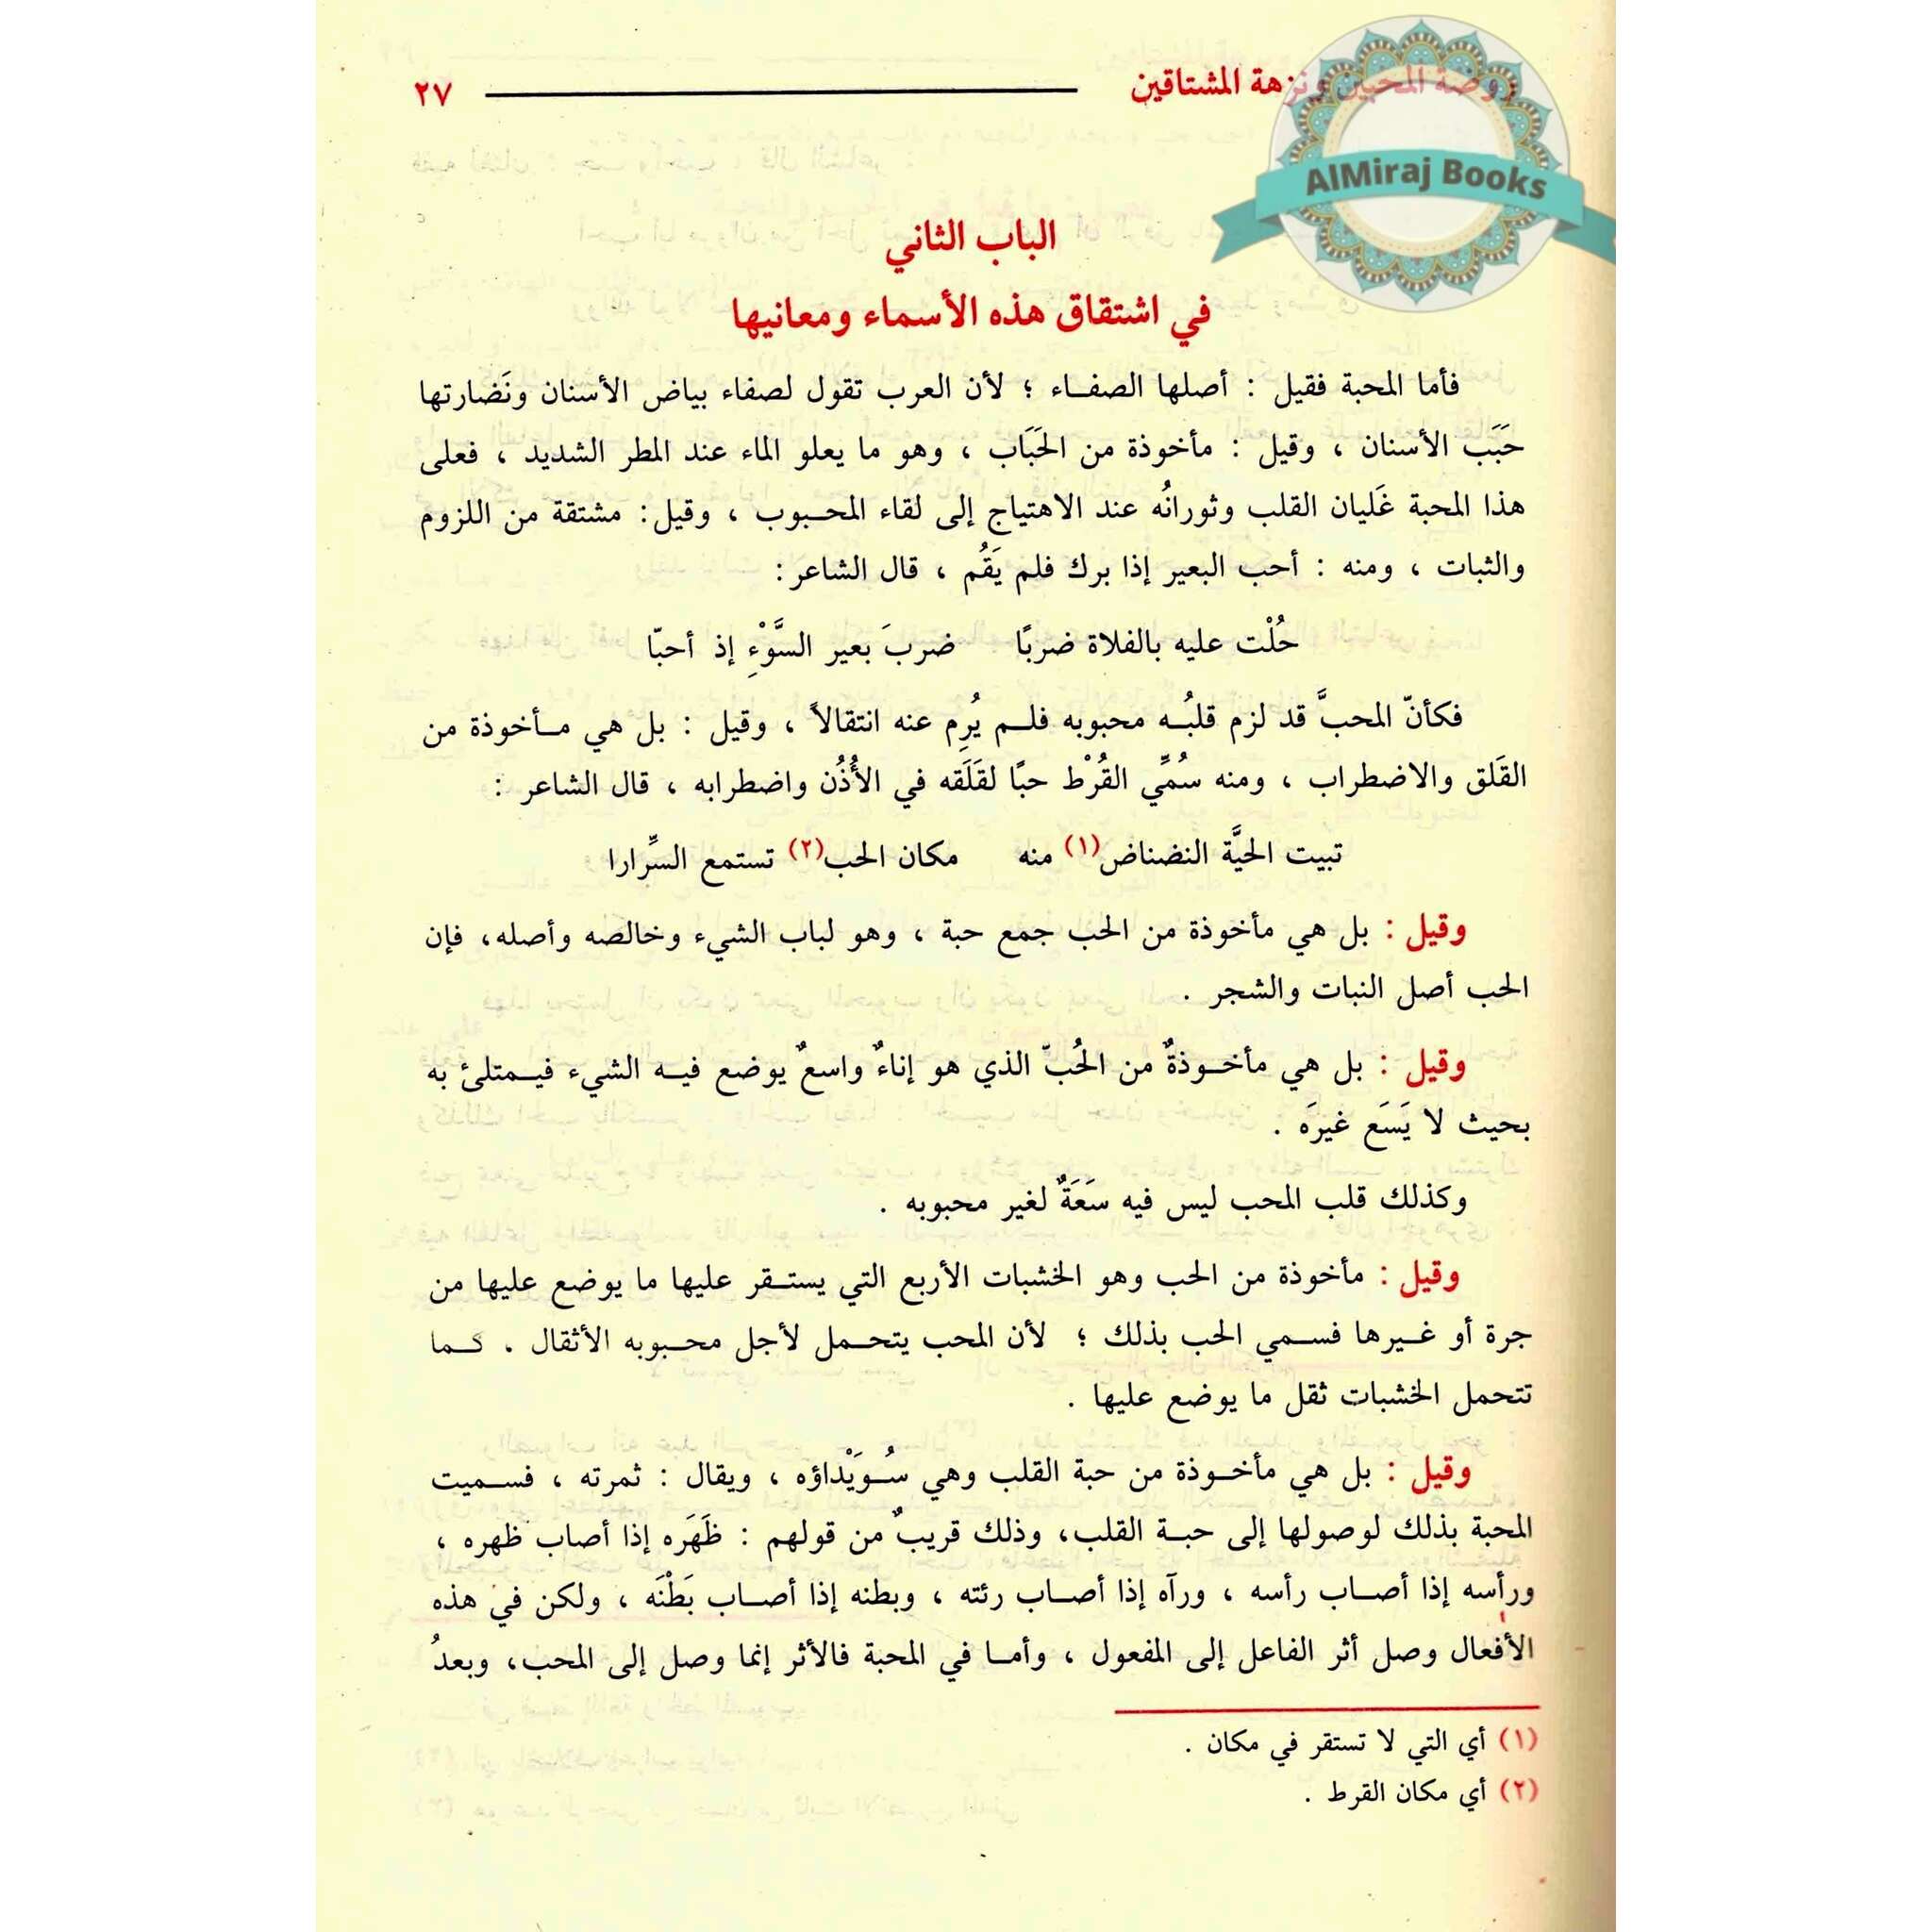 روضة المحبين ونزهة المشتاقين ٢٧
AlMiraj Books
الباب الثاني
في اشتقاق هذه الأسماء ومعانيها
فأما المحبة فقيل : أصلها الصفاء ؛ لأن العرب تقول لصفاء بياض الأسنان ونَضارتها
حَبَبَ الأسنان ، وقيل : مأخوذة من الحَبَاب ، وهو ما يعلو الماء عند المطر الشديد ، فعلى
هذا المحبة غَليان القلب وثورانُه عند الاهتياج إلى لقاء المحبوب ، وقيل: مشتقة من اللزوم
والثبات ، ومنه : أحب البعير إذا برك فلم يَقُم ، قال الشاعر:
حُلْت عليه بالفلاة ضربًا ضربَ بَعير السَّوْءِ إذ أحبّا
فكأنّ المحبَّ قد لزم قلبُه محبوبه فلم يُرِم عنه انتقالاً ، وقيل : بل هي مأخوذة من
القَلق والاضطراب ، ومنه سُمِّي القُرْط حبًا لقَلَقه في الأُذُن واضطرابه ، قال الشاعر :
تبيت الحيَّة النضناض(١) منه مكان الحب(٢) تستمع السِّرارا
وقيل : بل هي مأخوذة من الحب جمع حبة ، وهو لباب الشيء وخالصه وأصله، فإن
الحب أصل النبات والشجر .
وقيل : بل هي مأخوذةٌ من الحُبّ الذي هو إناءٌ واسعٌ يوضع فيه الشيء فيمتلئ به
بحيث لا يَسَع غيرَه .
وكذلك قلب المحب ليس فيه سَعَةٌ لغير محبوبه .
وقيل : مأخوذة من الحب وهو الخشبات الأربع التي يستقر عليها ما يوضع عليها من
جرة أو غيرها فسمي الحب بذلك ؛ لأن المحب يتحمل لأجل محبوبه الأثقال . كما
تتحمل الخشبات ثقل ما يوضع عليها .
وقيل : بل هي مأخوذة من حبة القلب وهي سُوَيْداؤه ، ويقال : ثمرته ، فسميت
المحبة بذلك لوصولها إلى حبة القلب، وذلك قريبٌ من قولهم : ظَهَره إذا أصاب ظهره ،
ورأسه إذا أصاب رأسه ، ورآه إذا أصاب رئته ، وبطنه إذا أصاب بَطْنَه ، ولكن في هذه
الأفعال وصل أثر الفاعل إلى المفعول ، وأما في المحبة فالأثر إنما وصل إلى المحب، وبعدُ
(١) أي التي لا تستقر في مكان .
(٢) أي مكان القرط .